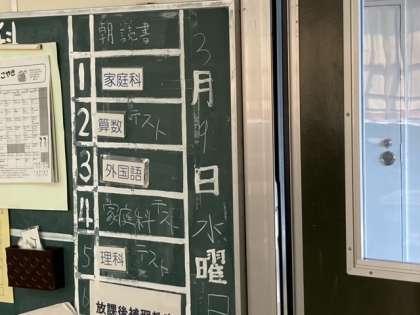 朝読書
1 家庭科
2 算数 テスト
3 外国語
4 家庭科 テスト
5 理科 テスト
6 放課後補習
3月9日水曜日
科
こやき